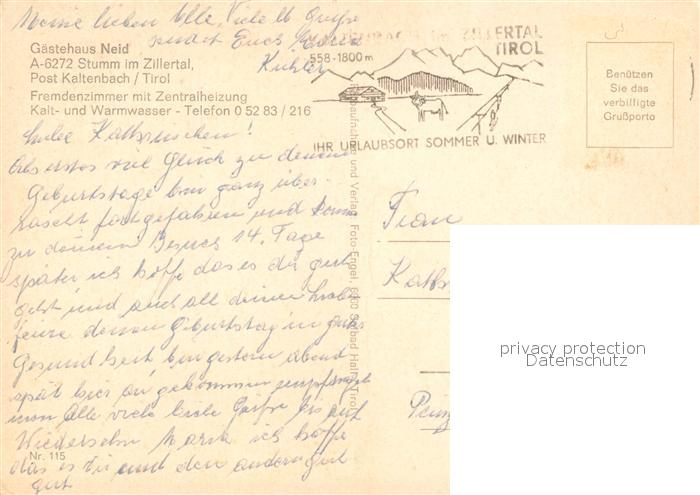 Meine lieben Alle, Viele lb Grüße
sendet Euch Maria
Kuhler
Gästehaus Neid
A-6272 Stumm im Zillertal,
Post Kaltenbach / Tirol
Fremdenzimmer mit Zentralheizung
Kalt- und Warmwasser - Telefon 0 52 83 / 216
IM ZILLERTAL
TIROL
558-1800 m
IHR URLAUBSORT SOMMER U. WINTER
Benützen
Sie das
verbilligte
Grußporto
Liebe Kathrinchen!
Als erstes viel Glück zu deinem
Geburtstage bin ganz über-
rascht fortgefahren und komme
zu deinem Besuch 14. Tage
später ich hoffe das es dir gut
geht und auch all deinen Lieben
feire deinen Geburtstag in guter
Gesundheit bin gestern abend
spät hier an gekommen
nun Alle viele liebe Grüße bis auf
Wiedersehn Maria ich hoffe
das es dir und den andern gut
gut
Nr. 115
und Verlag Foto-Engel, Solbad Hall/Tirol
Frau
Kath
privacy protection
Datenschutz